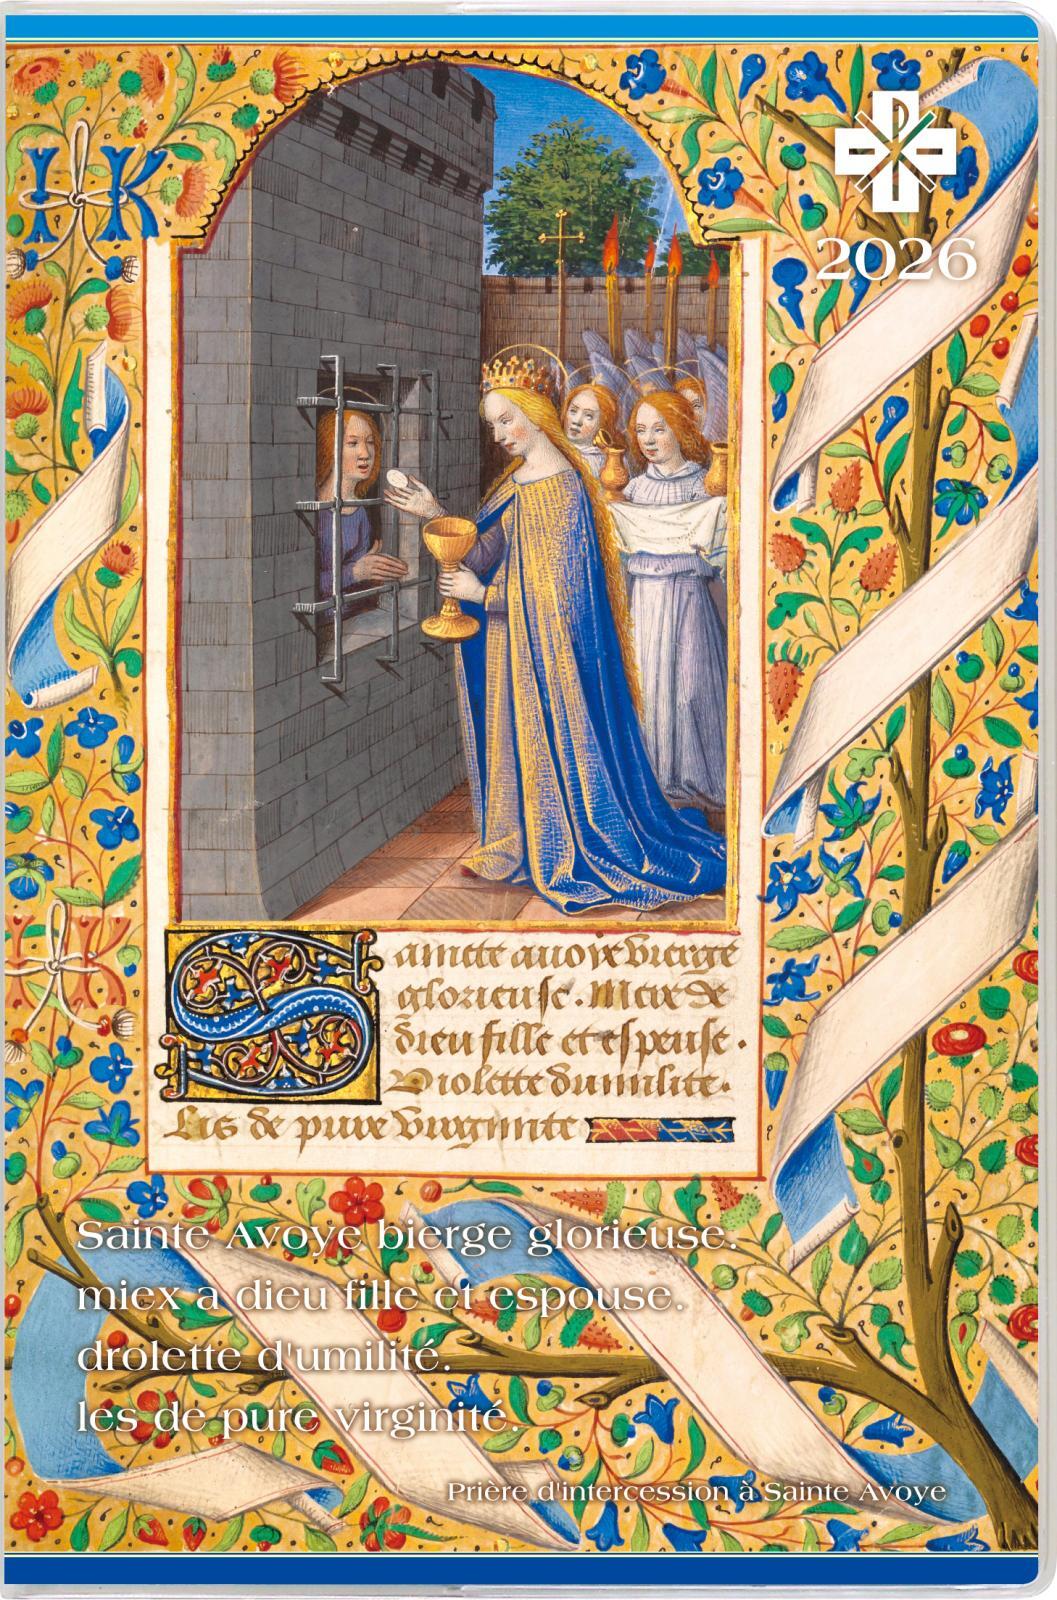 K
2026
Saincte avoye vierge
glorieuse. Mere de
dieu fille et espeuse.
Violette dumilite.
Lis de pure virginite
Sainte Avoye bierge glorieuse.
miex a dieu fille et espouse.
drolette d'umilité.
les de pure virginité.
Prière d'intercession à Sainte Avoye